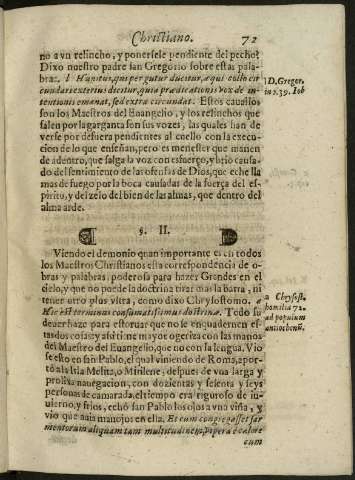 Christiano. 72
no a vn relincho, y ponersele pendiente del pecho?
Dixo nuestro padre san Gregorio sobre estas pala-
bras. d Hinnitus, qui per guttur ducitur, æqui collo cir
cundari exterius dicitur, quia prædicationis vox de in-
tentionis emanat, sed extra circundat. Estos cauallos
son los Maestros del Euangelio, y los relinchos que
salen por la garganta son sus vozes, las quales han de
verse por defuera pendientes al cuello con la execu-
cion de lo que enseñan, pero es menester que manen
de adentro, que salga la voz con esfuerço, y brio causa-
do del sentimiento de las ofensas de Dios, que eche lla
mas de fuego por la boca causadas de la fuerça del es-
piritu, y del zelo del bien de las almas, que dentro del
alma arde.
d D. Gregor.
in c. 39. Iob
§. II.
Viendo el demonio quan importante es en todos
los Maestros Christianos esta correspondencia de o-
bras y palabras, poderosa para hazer Grandes en el
cielo, y que no puede la doctrina tirar mas la barra, ni
tener otro plus vltra, como dixo Chrysostomo. a
Hic est terminus consumatissimus doctrinæ. Todo su
deuer haze para estoruar que no se enquadernen es-
tas dos cosas: y assi tiene mayor ogeriza con las manos
del Maestro del Euangelio, que no con la lengua. Vio
se esto en san Pablo, el qual viniendo de Roma, apor-
tò a la Isla Melita, o Mitilene; despues de vna larga y
prolixa nauegacion, con dozientas y setenta y seys
personas de camarada, el tiempo era riguroso de in-
uierno, y frios, echò san Pablo los ojos a vna viña, y
vio que auia manojos en ella. Et cum congregasset sar
mentorum aliquantam multitudinem, vipera è calore
cum
a Chrysost.
homilia 72.
ad populum
antiochenũ.